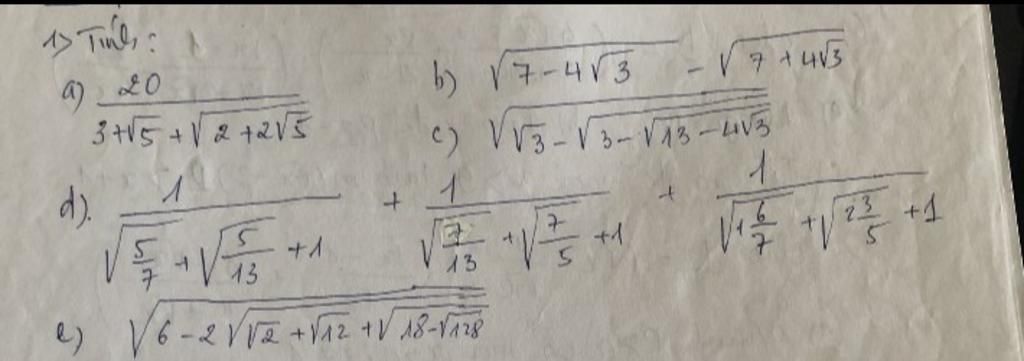 1> Tính:
a) \frac{20}{3+\sqrt{5}+\sqrt{2+2\sqrt{5}}}
b) \sqrt{7-4\sqrt{3}} - \sqrt{7+4\sqrt{3}}
c) \sqrt{\sqrt{3}-\sqrt{3-\sqrt{13-4\sqrt{3}}}}
d). \frac{1}{\sqrt{\frac{5}{7}}+\sqrt{\frac{5}{13}}+1} + \frac{1}{\sqrt{\frac{7}{13}}+\sqrt{\frac{7}{5}}+1} + \frac{1}{\sqrt{1\frac{6}{7}}+\sqrt{2\frac{3}{5}}+1}
e) \sqrt{6-2\sqrt{\sqrt{2}+\sqrt{12}+\sqrt{18-\sqrt{128}}}}